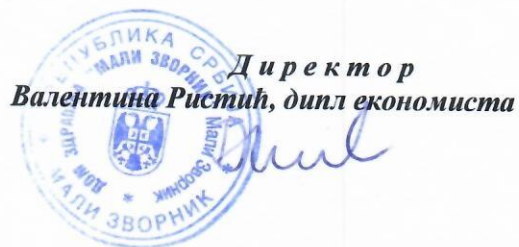 Д и р е к т о р
Валентина Ристић, дипл економиста
РЕПУБЛИКА СРБИЈА
ДОМ ЗДРАВЉА "МАЛИ ЗВОРНИК"
Мали Зворник
МАЛИ ЗВОРНИК